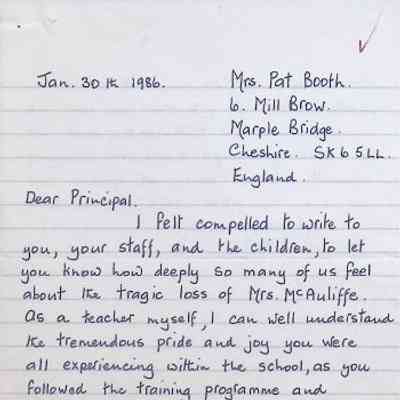 Jan. 30th 1986.
Mrs. Pat Booth.
6. Mill Brow.
Marple Bridge.
Cheshire. SK6 5LL.
England.
Dear Principal.
I felt compelled to write to
you, your staff, and the children, to let
you know how deeply so many of us feel
about the tragic loss of Mrs. McAuliffe.
As a teacher myself, I can well understand
the tremendous pride and joy you were
all experiencing within the school, as you
followed the training programme and